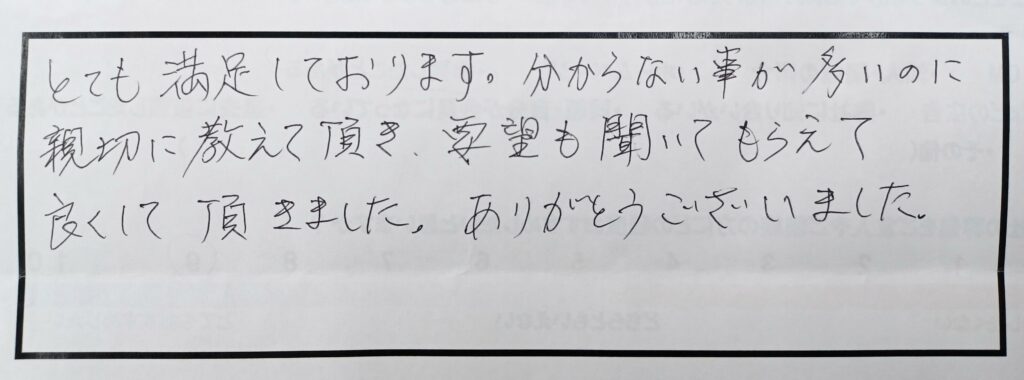 とても満足しております。分からない事が多いのに
親切に教えて頂き、要望も聞いてもらえて
良くして頂きました。ありがとうございました。